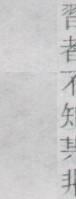 習者不知其非